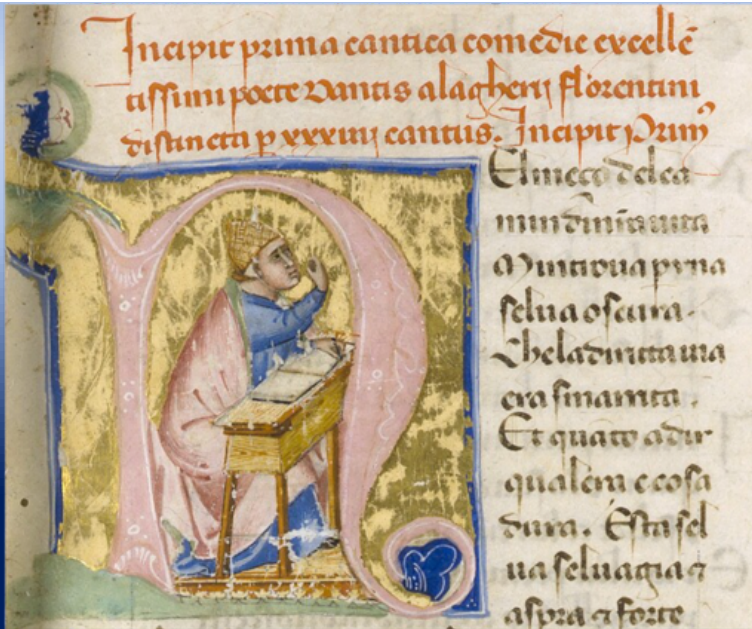 Incipit prima cantica comedie excellē
tissimi poete Dantis alagherij florentini
distincta p xxxiiij cantus. Incipit Prim⁹
El meço delca
min dinr̄a uita
Mi ritroua p una
selua oscura.
Che la diricta uia
era smarrita.
Et quāto adir
qualera e cosa
dura. Esta sel
ua seluagia ⁊
aspra ⁊ forte